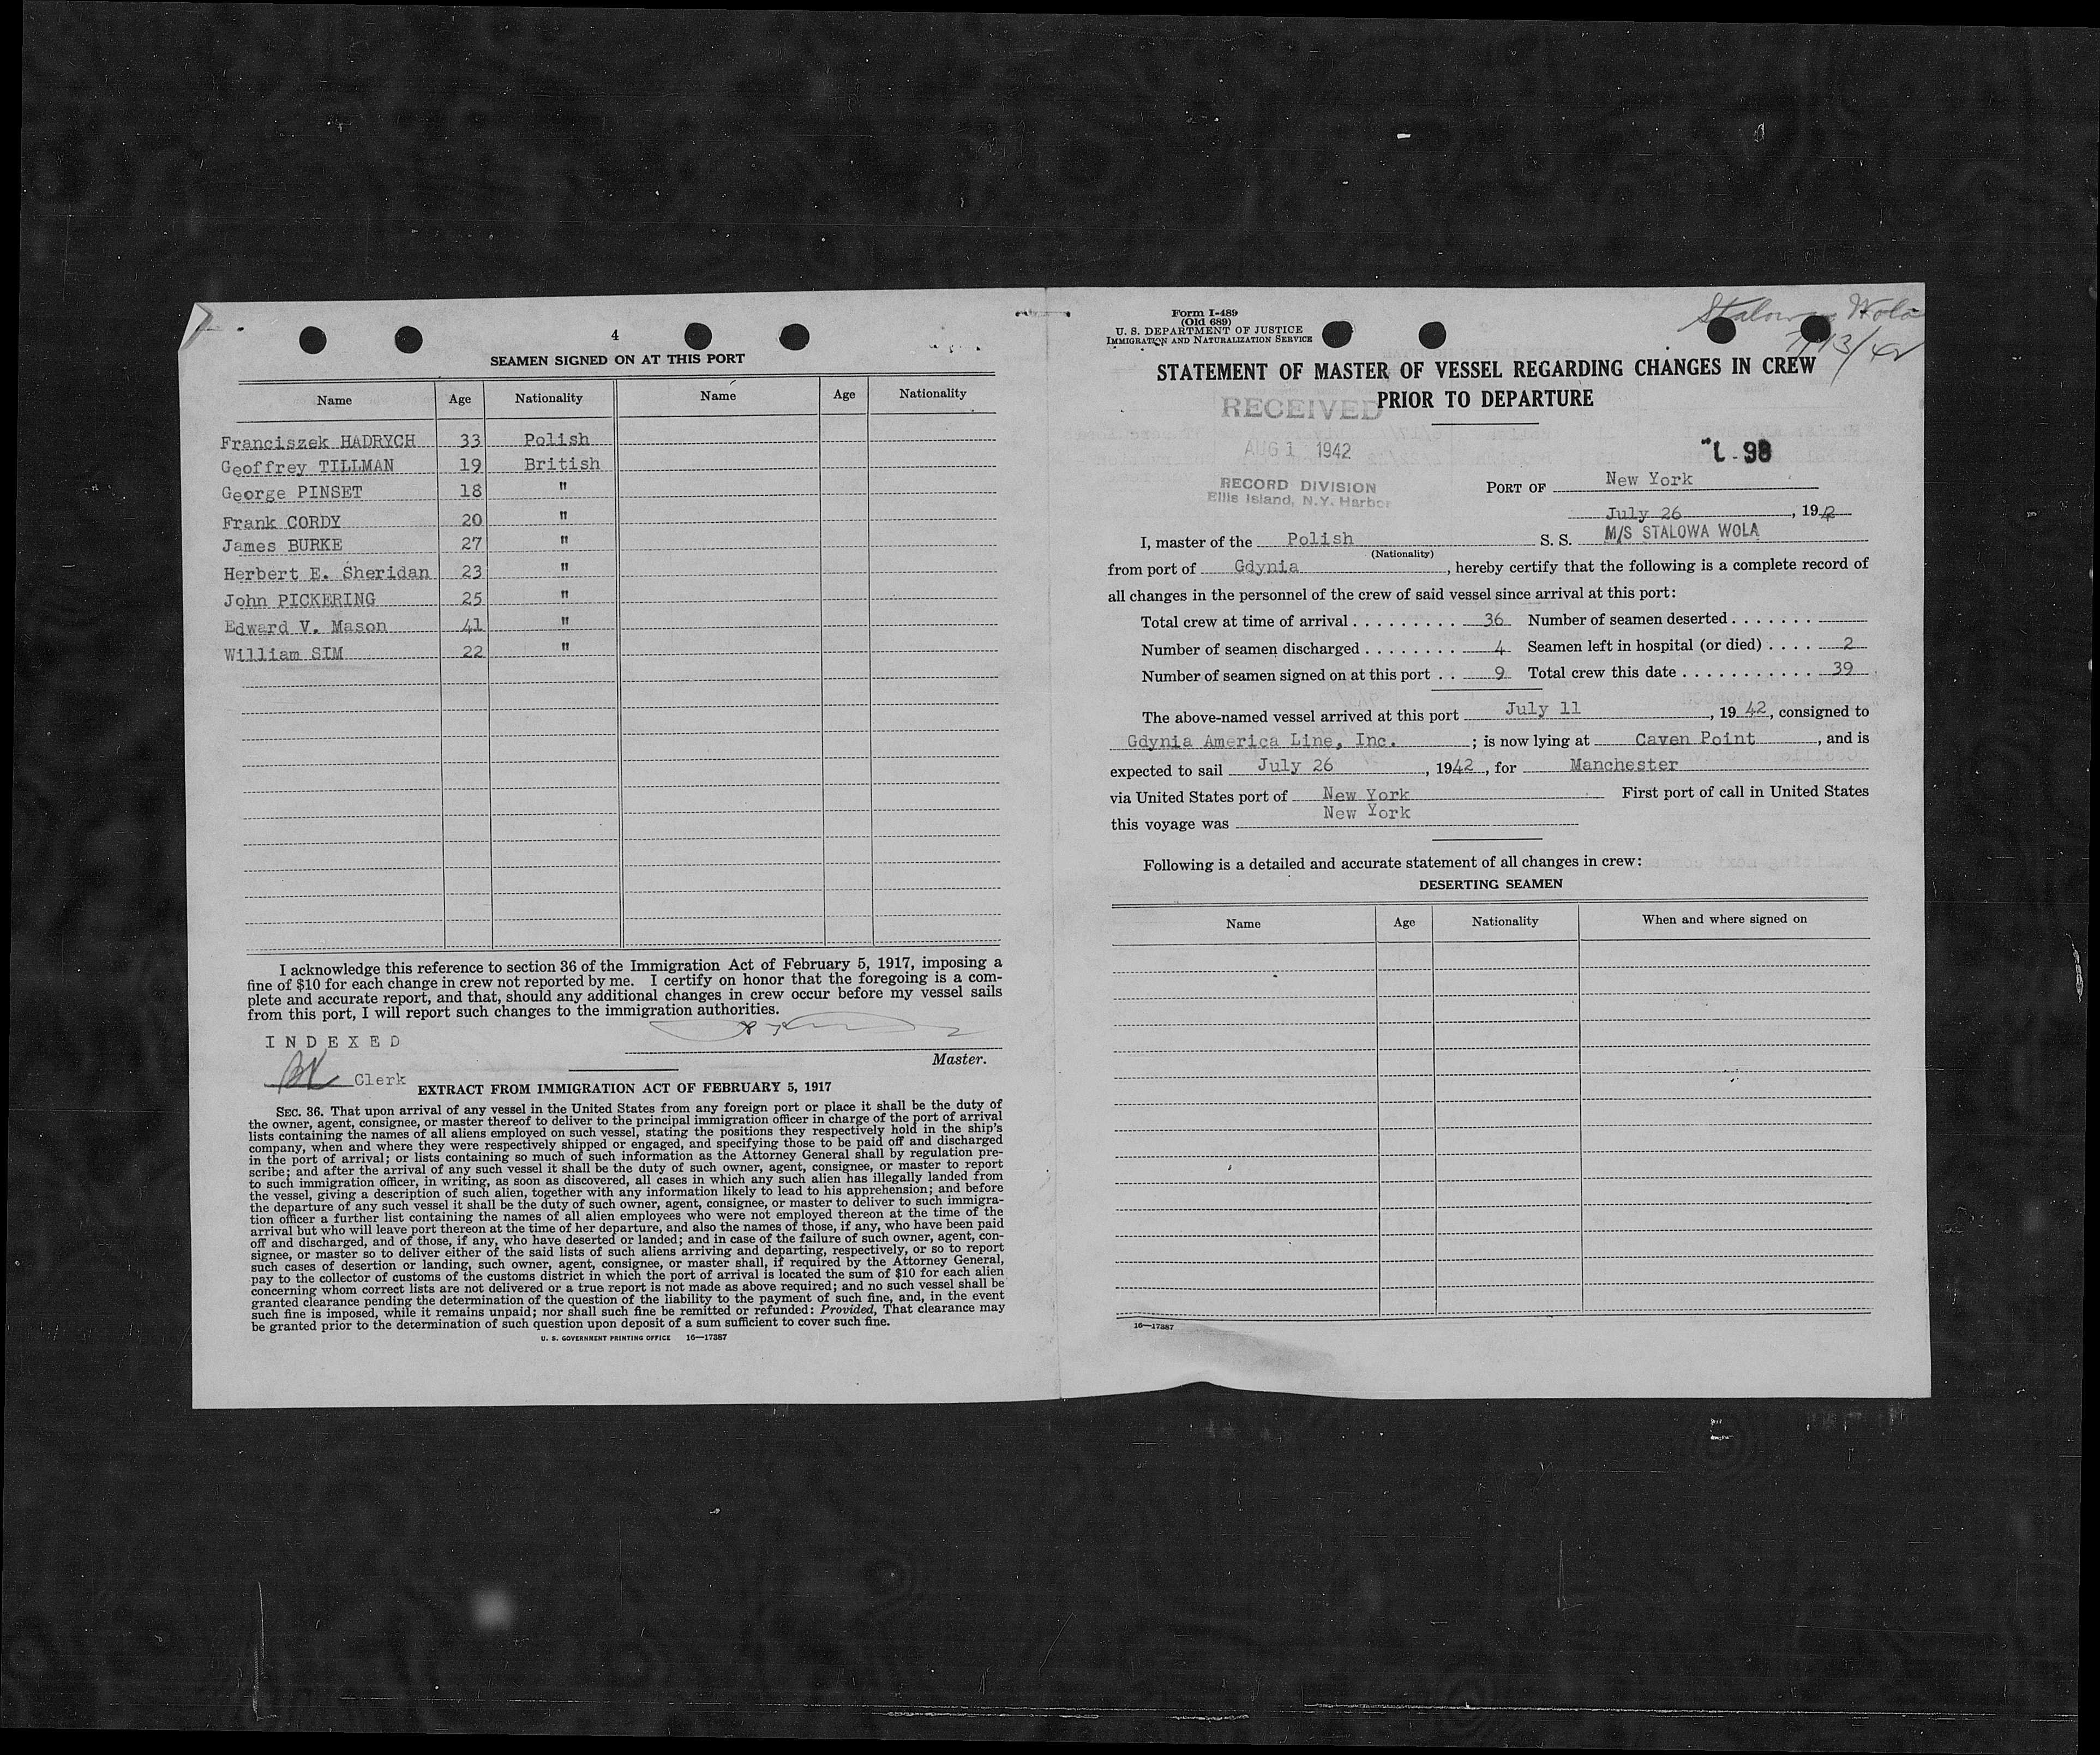 4
SEAMEN SIGNED ON AT THIS PORT
Name Age Nationality Name Age Nationality
Franciszek HADRYCH 33 Polish
Geoffrey TILLMAN 19 British
George PINSET 18 "
Frank CORDY 20 "
James BURKE 27 "
Herbert E. Sheridan 23 "
John PICKERING 25 "
Edward V. Mason 41 "
William SIM 22 "
I acknowledge this reference to section 36 of the Immigration Act of February 5, 1917, imposing a
fine of $10 for each change in crew not reported by me. I certify on honor that the foregoing is a com-
plete and accurate report, and that, should any additional changes in crew occur before my vessel sails
from this port, I will report such changes to the immigration authorities.
INDEXED
Master.
Clerk
EXTRACT FROM IMMIGRATION ACT OF FEBRUARY 5, 1917
SEC. 36. That upon arrival of any vessel in the United States from any foreign port or place it shall be the duty of
the owner, agent, consignee, or master thereof to deliver to the principal immigration officer in charge of the port of arrival
lists containing the names of all aliens employed on such vessel, stating the positions they respectively hold in the ship's
company, when and where they were respectively shipped or engaged, and specifying those to be paid off and discharged
in the port of arrival; or lists containing so much of such information as the Attorney General shall by regulation pre-
scribe; and after the arrival of any such vessel it shall be the duty of such owner, agent, consignee, or master to report
to such immigration officer, in writing, as soon as discovered, all cases in which any such alien has illegally landed from
the vessel, giving a description of such alien, together with any information likely to lead to his apprehension; and before
the departure of any such vessel it shall be the duty of such owner, agent, consignee, or master to deliver to such immigra-
tion officer a further list containing the names of all alien employees who were not employed thereon at the time of the
arrival but who will leave port thereon at the time of her departure, and also the names of those, if any, who have been paid
off and discharged, and of those, if any, who have deserted or landed; and in case of the failure of such owner, agent, con-
signee, or master so to deliver either of the said lists of such aliens arriving and departing, respectively, or so to report
such cases of desertion or landing, such owner, agent, consignee, or master shall, if required by the Attorney General,
pay to the collector of customs of the customs district in which the port of arrival is located the sum of $10 for each alien
concerning whom correct lists are not delivered or a true report is not made as above required; and no such vessel shall be
granted clearance pending the determination of the question of the liability to the payment of such fine, and, in the event
such fine is imposed, while it remains unpaid; nor shall such fine be remitted or refunded: Provided, That clearance may
be granted prior to the determination of such question upon deposit of a sum sufficient to cover such fine.
U. S. GOVERNMENT PRINTING OFFICE 16—17387
Form I-489
(Old 689)
U. S. DEPARTMENT OF JUSTICE
IMMIGRATION AND NATURALIZATION SERVICE
Stalowa Wola
7/13/42
STATEMENT OF MASTER OF VESSEL REGARDING CHANGES IN CREW
PRIOR TO DEPARTURE
RECEIVED
AUG 1 1942
RECORD DIVISION
Ellis Island, N.Y. Harbor
98
PORT OF New York
July 26, 1942
I, master of the Polish S. S. M/S STALOWA WOLA
(Nationality)
from port of Gdynia, hereby certify that the following is a complete record of
all changes in the personnel of the crew of said vessel since arrival at this port:
Total crew at time of arrival . . . . . . . . . 36 Number of seamen deserted . . . . . . .
Number of seamen discharged . . . . . . . . 4 Seamen left in hospital (or died) . . . . 2
Number of seamen signed on at this port . . 9 Total crew this date . . . . . . . . . . . 39
The above-named vessel arrived at this port July 11, 1942, consigned to
Gdynia America Line, Inc.; is now lying at Caven Point, and is
expected to sail July 26, 1942, for Manchester
via United States port of New York First port of call in United States
this voyage was New York
Following is a detailed and accurate statement of all changes in crew:
DESERTING SEAMEN
Name Age Nationality When and where signed on
16—17387